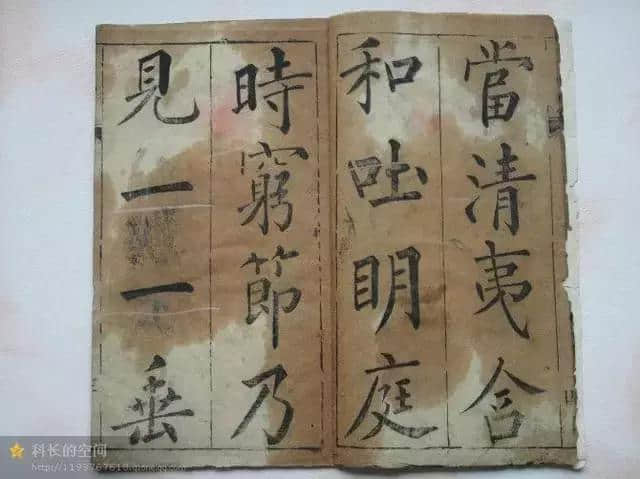 當清夷含
和吐眀庭
時窮節乃
見一一垂
科长的空间